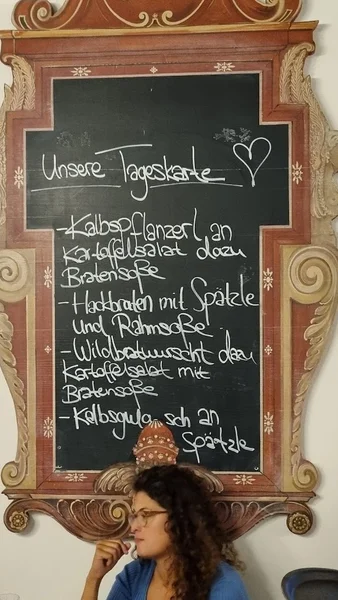 Unsere Tageskarte
- Kalbspflanzerl an
Kartoffelsalat dazu
Bratensoße
- Hackbraten mit Spätzle
und Rahmsoße
- Wildbratwurscht dazu
Kartoffelsalat mit
Bratensoße
- Kalbsgulasch an
Spätzle